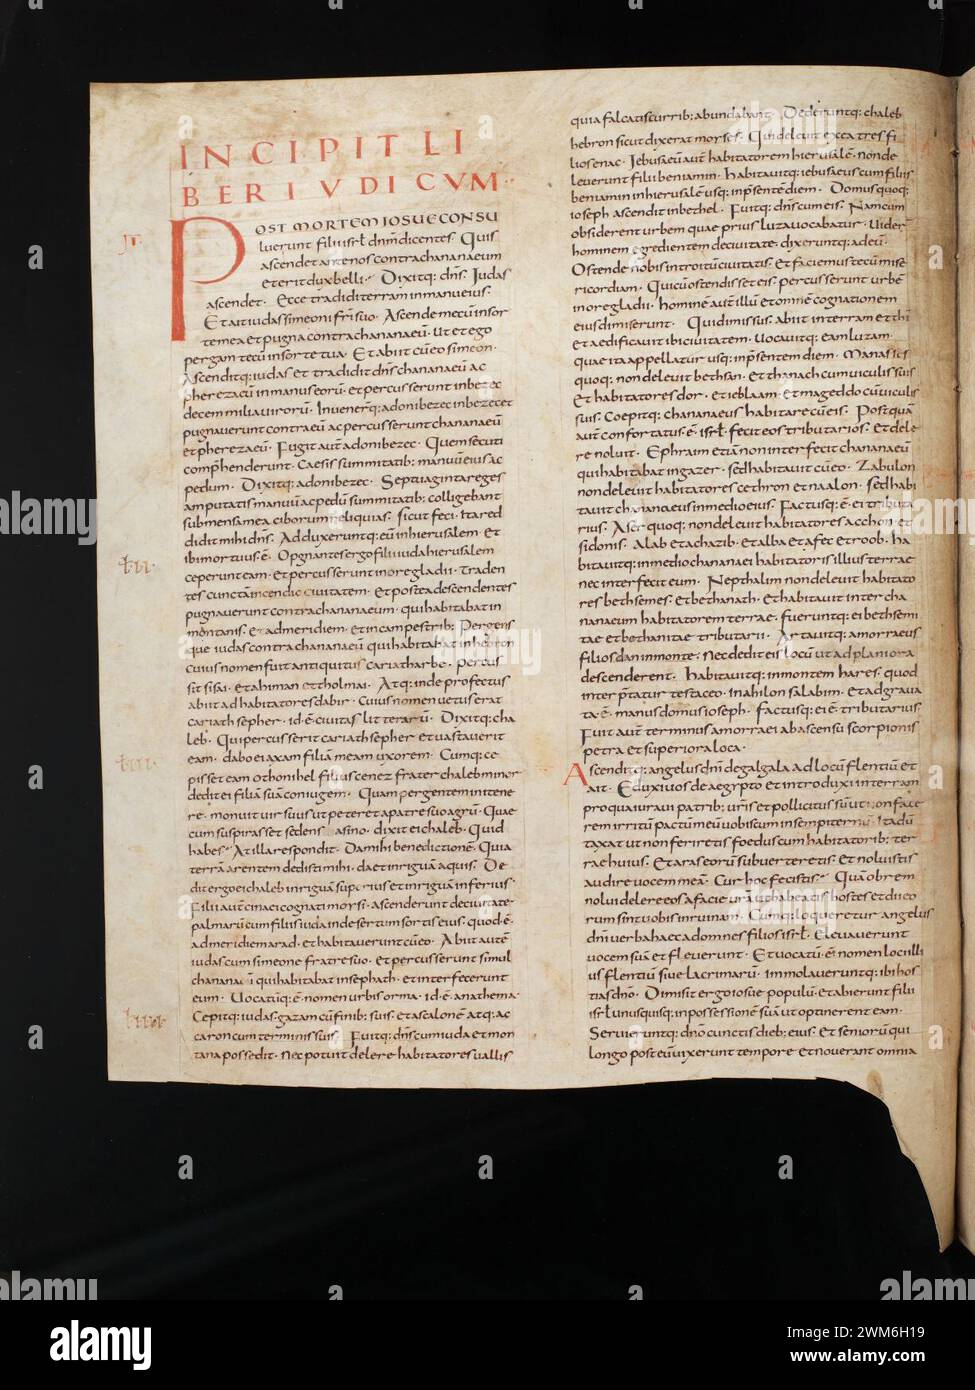 INCIPIT LI
BER IUDICVM
POST MORTEM IOSUE CONSU
luerunt filii isrł dnm dicentes· Quis
ascendet ante nos contra chananaeum
et erit dux belli· Dixitq: dns· Iudas
ascendet· Ecce tradidi terram in manu eius·
Et ait iudas simeoni fri suo· Ascende mecū in sor
te mea et pugna contra chananaeū· Ut et ego
pergam tecū in sorte tua· Et abiit cū eo simeon·
Ascenditq: iudas et tradidit dns chananaeū ac
pherezacū in manus eorū· et percusserunt in bezec
decem milia virorū· Inuenerq: adonibezec in bezec et
pugnauerunt contra eū ac percusserunt chananaeū
et pherezaeū· Fugit aūt adonibezec· Quem secuti
comphenderunt· Caesis summitatib: manuū eius ac
pedum· Dixitq: adonibezec· Septuaginta reges
amputatis manuū ac pedū summitatib: colligebant
sub mensa mea ciborum reliquias· sicut feci· ita red
didit mihi dns· Adduxeruntq: eū in hierusalem· et
ibi mortuus ē· Opgnantes ergo filii iuda hierusalem
ceperunt eam· et percusserunt in ore gladii· Traden
tes cuncta incendio ciuitatem· Et postea descendentes
pugnauerunt contra chananaeum· qui habitabat in
montanis· et ad meridiem· et in campestrib: Pergens
que iudas contra chananaeū qui habitabat in hebron
cuius nomen fuit antiquitus cariatharbe· percus
sit sisai· et ahiman et tholmai· Atq: inde profectus
abiit ad habitatores dabir· Cuius nomen uetus erat
cariath sepher· id ē ciuitas litterarū· Dixitq: cha
leb· Qui percusserit cariath sepher et uastauerit
eam· dabo ei axan filiā meam uxorem· Cumq: ce
pisset eam othonihel filius cenez frater chaleb minor
dedit ei filiā suā coniugem· Quam pergentem in itene
re· monuit uir suus ut peteret a patre suo agrū· Quae
cum suspirasset sedens asino· dixit ei chaleb· Quid
habes· At illa respondit· Da mihi benedictionē· Quia
terrā arentem dedisti mihi· da et inriguā aquis· De
dit ergo ei chaleb inriguā superius et inriguā inferius·
Filii aūt cinaei cognati mosi· ascenderunt de ciuitate
palmarū cum filiis iuda in desertum sortis eius· quod ē·
ad meridiem arad· et habitauerunt cū eo· Abiit autē
iudas cum simeone fratre suo· et percusserunt simul
chananaeū qui habitabat in sephath· et interfecerunt
eum· Uocatūq: ē· nomen urbis orma· id ē· anathema·
Cepitq: iudas· gazam cū finib: suis· et ascalonē atq: ac
caron cum terminis suis· Fuitq: dns cum iuda et mon
tana possedit· nec potuit delere habitatores uallis
quia falcatis currib: abundabant· Dederuntq: chaleb
hebron sicut dixerat moyses· Qui deleuit ex ea tres fi
lios enac· Iebusaeū aūt habitatorem hierusalē· non de
leuerunt filii beniamin· habitauitq: iebusaeus cum filiis
beniamin in hierusalē usq: in psentē diem· Domus quoq:
ioseph ascendit in bethel· Fuitq: dns cum eis· Nam cum
obsiderent urbem quae prius luza uocabatur· Uider
hominem egredientem de ciuitate· dixeruntq: ad eū·
Ostende nobis introitū ciuitatis· et faciemus tecū mise
ricordiam· Qui cū ostendisset eis· percusserunt urbē
in ore gladii· hominē aūt illū et omnē cognationem
eius dimiserunt· Qui dimissus· abiit in terram etthi
et aedificauit ibi ciuitatem· Uocauitq: eam luzam·
quae ita appellatur usq: in psentem diem· Manasses
quoq: non deleuit bethsan· et thanach cum uiculis suis
et habitatores dor· et ieblaam· et mageddo cū uiculis
suis· Coepitq: chananeus habitare cū eis· Postquā
aūt confortatus· ē· isrł· fecit eos tributarios· et dele
re noluit· Ephraim etiā non interfecit chananaeū
qui habitabat in gazer· sed habitauit cū eo· Zabulon
non deleuit habitatores cethron et naalon· sed habi
tauit chananeus in medio eius· Factusq: ē· ei tributa
rius· Aser quoq: non deleuit habitatores acchon et
sidonis· Alab et achazib· et alba et afec et roob· ha
bitauitq: in medio chananaei habitatoris illius terrae
nec interfecit eum· Nepthalim non deleuit habitato
res bethsemes· et bethanath· et habitauit inter cha
nanaeum habitatorem terrae· fueruntq: ei bethsemi
tae et bethanitae tributarii· Artauitq: amorraeus
filios dan in monte· nec dedit eis locū ut ad planiora
descenderent· Habitauitq: in montem hares· quod
interptatur testaceo· in ahilon salabim· et adgraua
ta· ē· manus domus ioseph· Factusq: ei ē tributarius
Fuit aūt terminus amorraei ab ascensu scorpionis
petra et superiora loca·
Ascenditq: angelus dni de galgala ad locū flentiū et
ait· Eduxi uos de aegypto et introduxi in terram
pro qua iuraui patrib: uris et pollicitus sū ut non face
rem irritū pactū meū uobiscum in sempiternū· Ita dū
taxat ut non feriretis foedus cum habitatorib: ter
rae huius· et aras eorū subuerteretis· Et noluistis
audire uocem meā· Cur hoc fecistis· Quā ob rem
nolui delere eos a facie urā ut habeatis hostes et dii eo
rum sint uobis in ruinam· Cumq: loqueretur angelus
dni uerba haec ad omnes filios isrł· Eleuauerunt
uocem suā et fleuerunt· Et uocatū· ē· nomen loci illi
us flentiū siue lacrimarū· Immolaueruntq: ibi hos
tias dno· Dimisit ergo iosue populū· et abierunt filii
isrł unusquisq: in possessionē suā ut optinerent eam·
Serueruntq: dno cunctis dieb: eius· et seniorū qui
longo post eū uixerunt tempore· et nouerant omnia
alamy
Image ID: 2WM6H19
www.alamy.com